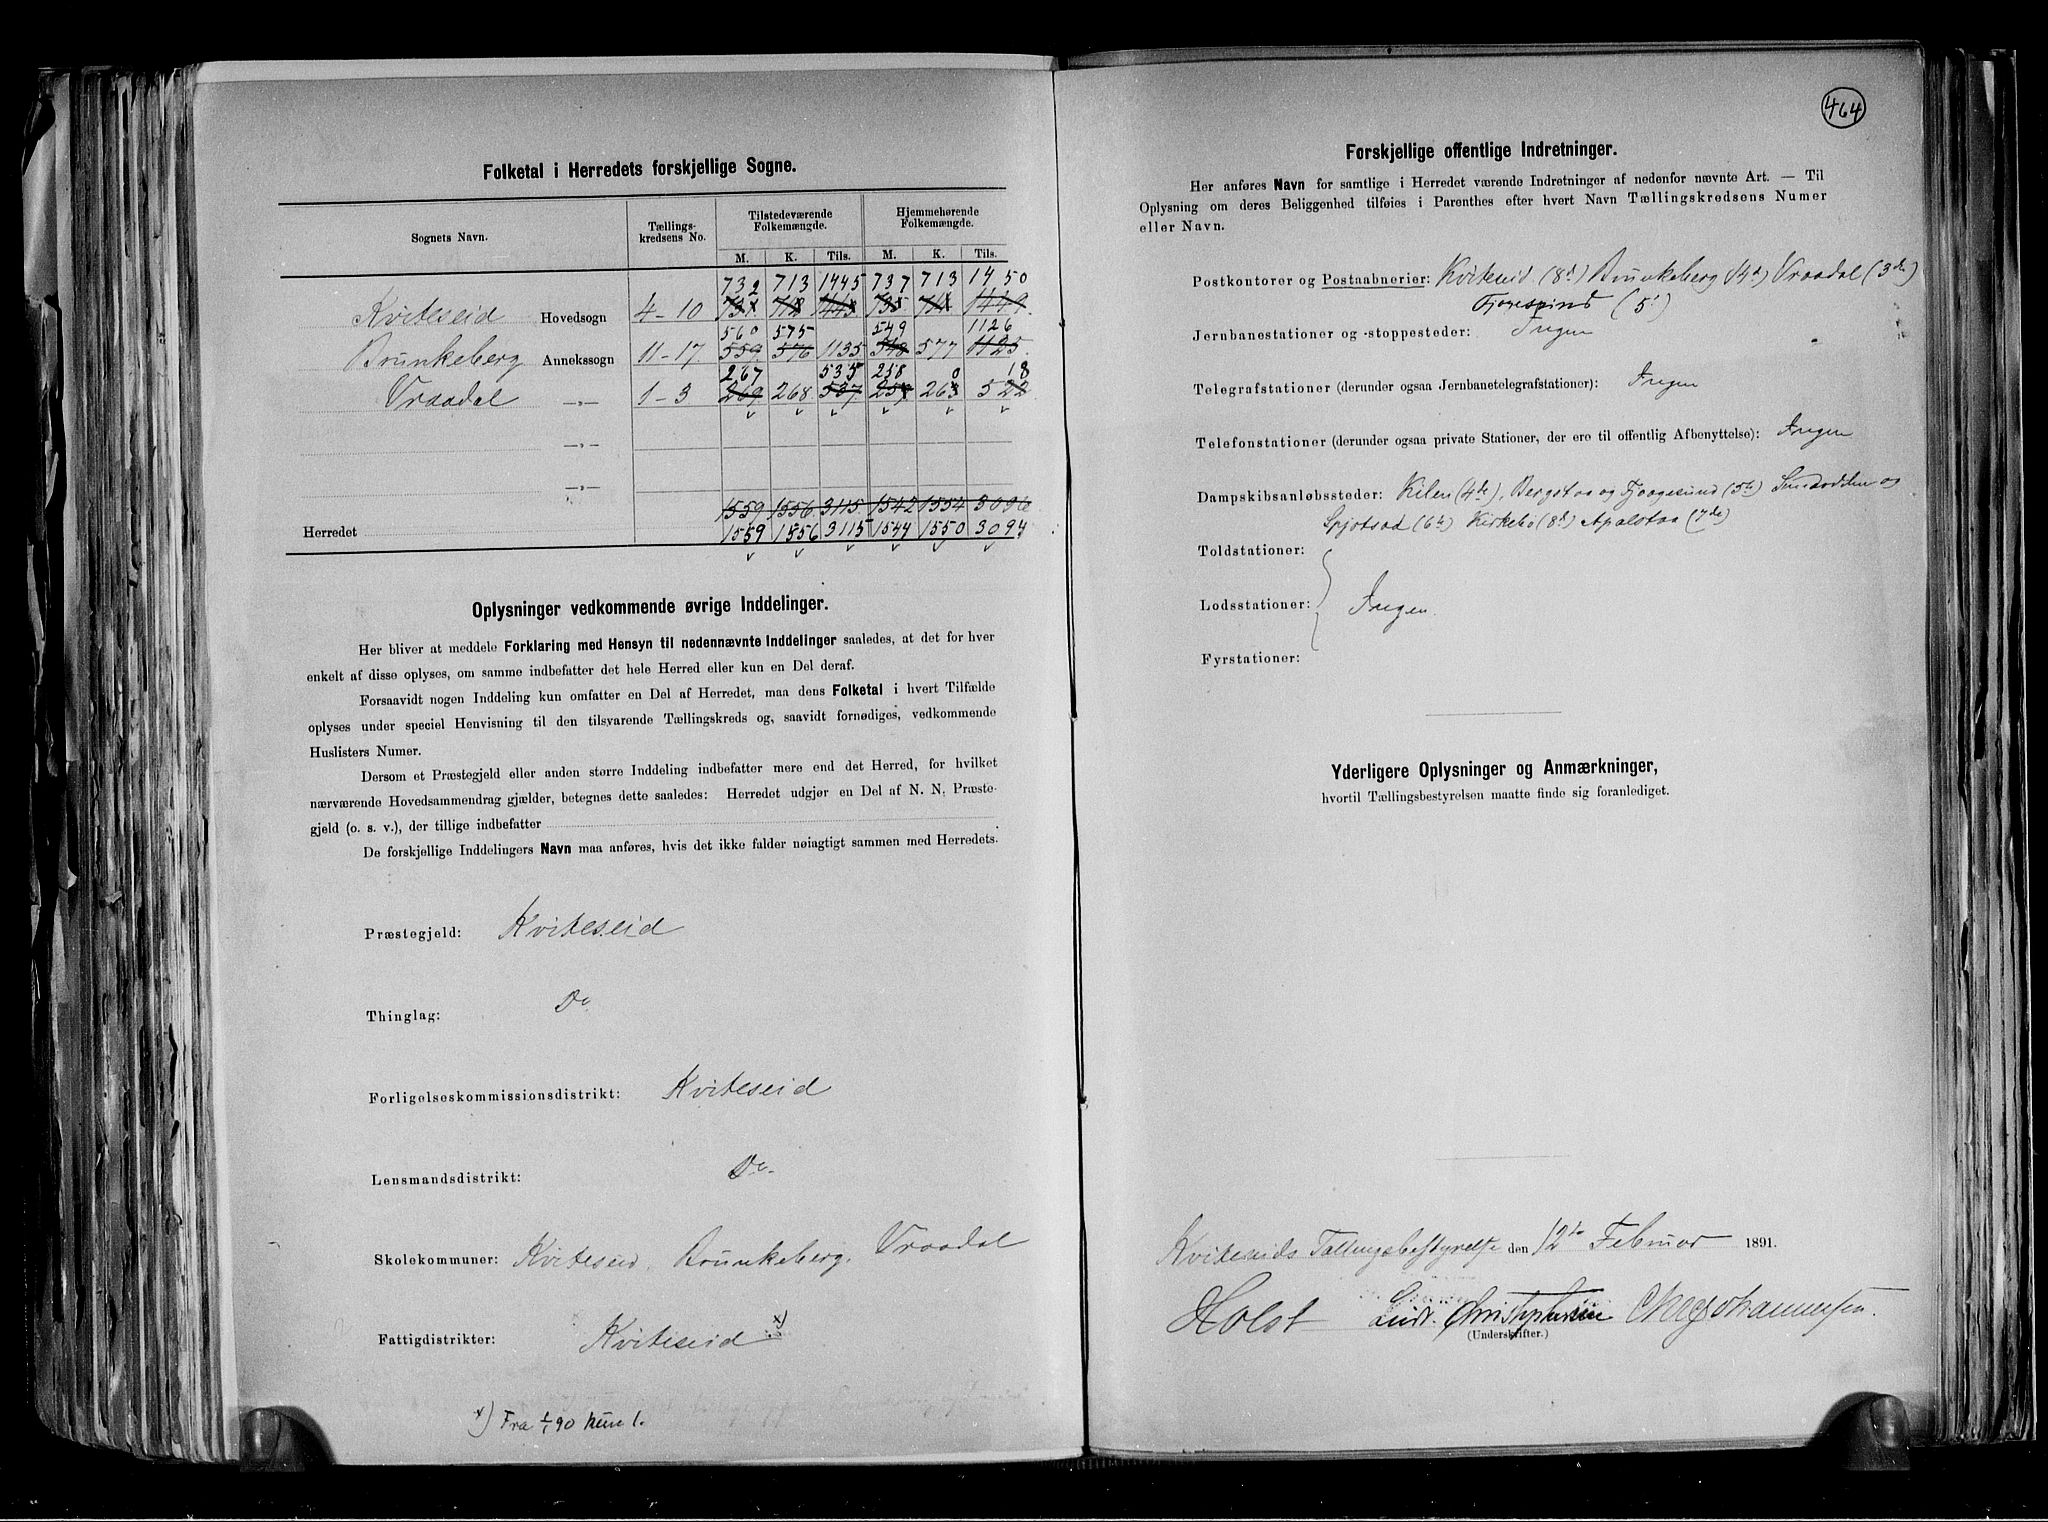 Folketal i Herredets forskjellige Sogne.
Sognets Navn. Tællings-kredsens No. Tilstedeværende Folkemængde. Hjemmehørende Folkemængde.
M. K. Tils. M. K. Tils.
732 713 1445 737 713 1450
Kviteseid Hovedsogn 4-10
560 575 549 1126
Brunkeberg Annekssogn 11-17. 559 576 1135 548 577 1125
267 535 258 0 18
Vraadal -„- 1-3 269 268 537 257 263 522
-„-
-„-
1559 1556 3115 1542 1554 3096
Herredet 1559 1556 3115 1544 1550 3094
Oplysninger vedkommende øvrige Inddelinger.
Her bliver at meddele Forklaring med Hensyn til nedennævnte Inddelinger saaledes, at det for hver
enkelt af disse oplyses, om samme indbefatter det hele Herred eller kun en Del deraf.
Forsaavidt nogen Inddeling kun omfatter en Del af Herredet, maa dens Folketal i hvert Tilfælde
oplyses under speciel Henvisning til den tilsvarende Tællingskreds og, saavidt fornødiges, vedkommende
Huslisters Numer.
Dersom et Præstegjeld eller anden større Inddeling indbefatter mere end det Herred, for hvilket
nærværende Hovedsammendrag gjælder, betegnes dette saaledes: Herredet udgjør en Del af N. N. Præste-
gjeld (o. s. v.), der tillige indbefatter
De forskjellige Inddelingers Navn maa anføres, hvis det ikke falder nøiagtigt sammen med Herredets.
Præstegjeld: Kviteseid
Thinglag: Do
Forligelseskommissionsdistrikt: Kviteseid
Lensmandsdistrikt: Do.
Skolekommuner: Kviteseid, Brunkeberg, Vraadal
Fattigdistrikter: Kviteseid x)
x) Fra 1/1 90 kun 1.
464
Forskjellige offentlige Indretninger.
Her anføres Navn for samtlige i Herredet værende Indretninger af nedenfor nævnte Art. — Til
Oplysning om deres Beliggenhed tilføies i Parenthes efter hvert Navn Tællingskredsens Numer
eller Navn.
Postkontorer og Postaabnerier: Kviteseid (8d) Brunkeberg 14d) Vraadal (3de)
(5t)
Jernbanestationer og -stoppesteder: Ingen
Telegrafstationer (derunder ogsaa Jernbanetelegrafstationer): Ingen
Telefonstationer (derunder ogsaa private Stationer, der ere til offentlig Afbenyttelse): Ingen
Dampskibsanløbssteder: Kilen (4de), Bergstaa og Fjaagesund (5te) Sundodden og
Spjotsod (6te) Kirkebø (8d) Apalstaa (7de)
Toldstationer:
Lodsstationer: Ingen.
Fyrstationer:
Yderligere Oplysninger og Anmærkninger,
hvortil Tællingsbestyrelsen maatte finde sig foranlediget.
Kviteseids Tællingsbestyrelse den 12te Februar 1891.
Holst Christophersen Johannessen.
(Underskrifter.)